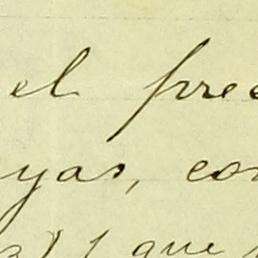 el pree
yas, con
y que